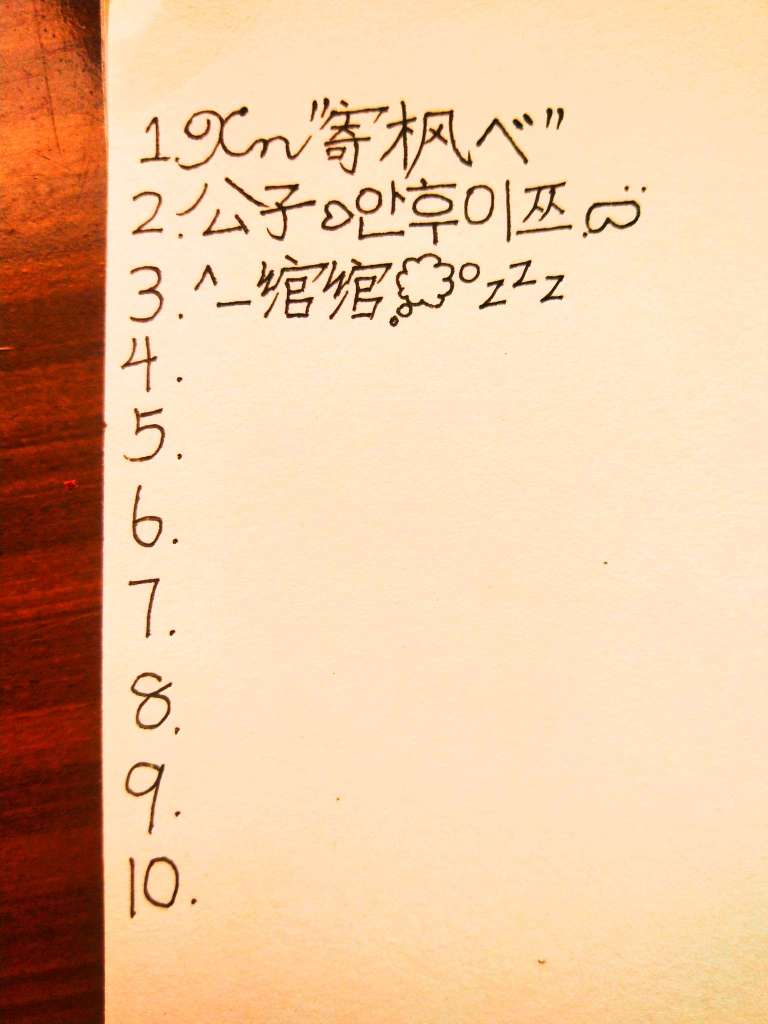 1.Xn"寄枫べ"
2.公子ο안후이쯔.ǒ̈
3.^_绾绾zzz
4.
5.
6.
7.
8.
9.
10.